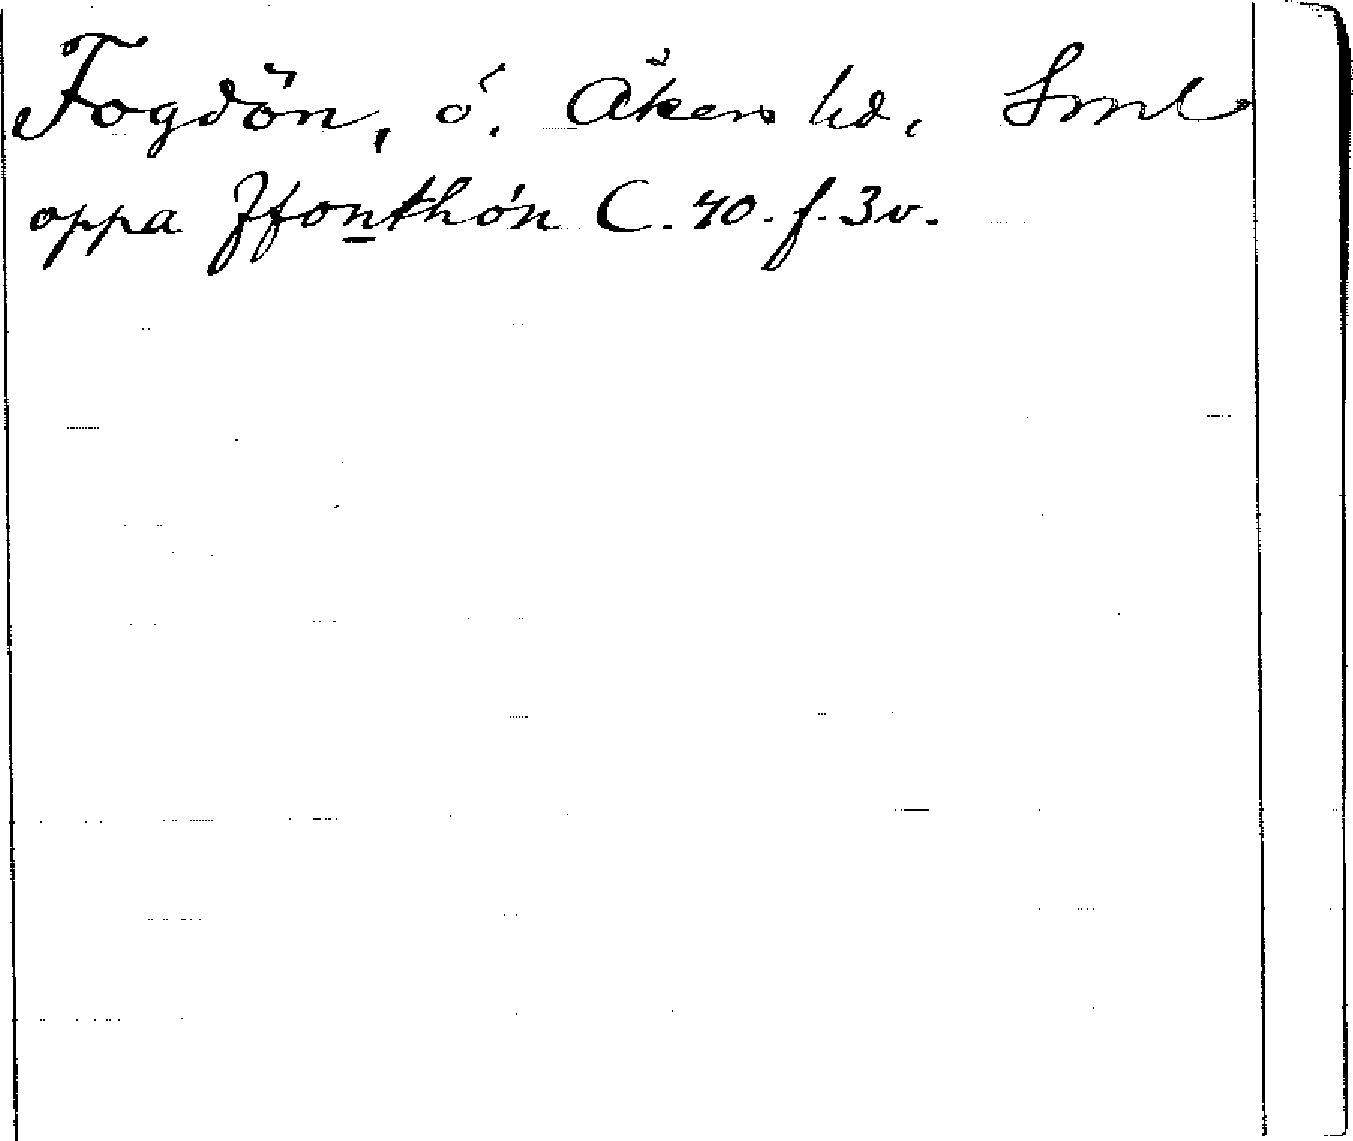 Fogdön, ö. Åkers hd, Sml
oppa Ffonthön C. 40. f. 3v.